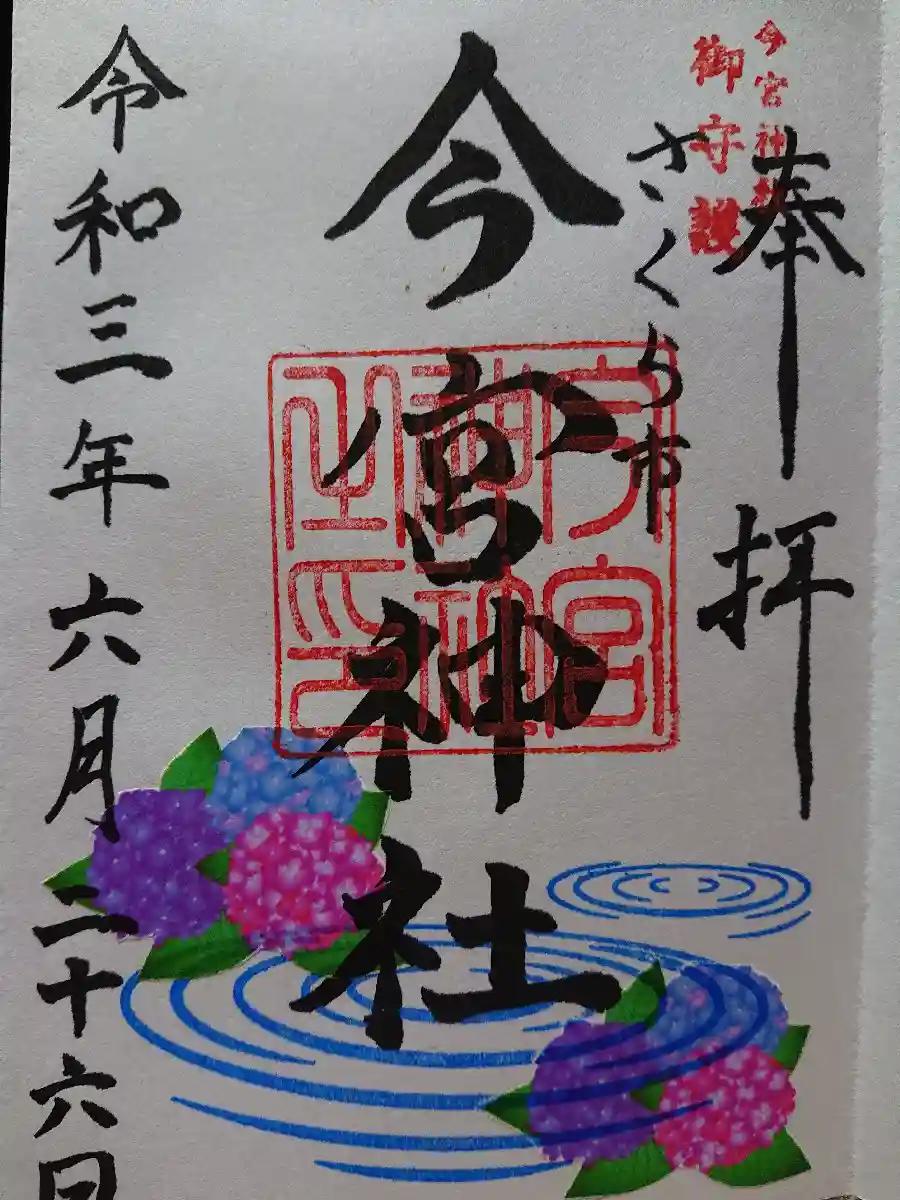 今宮神社
御守護
奉拝
さくら市
今宮神社
令和三年六月二十六日